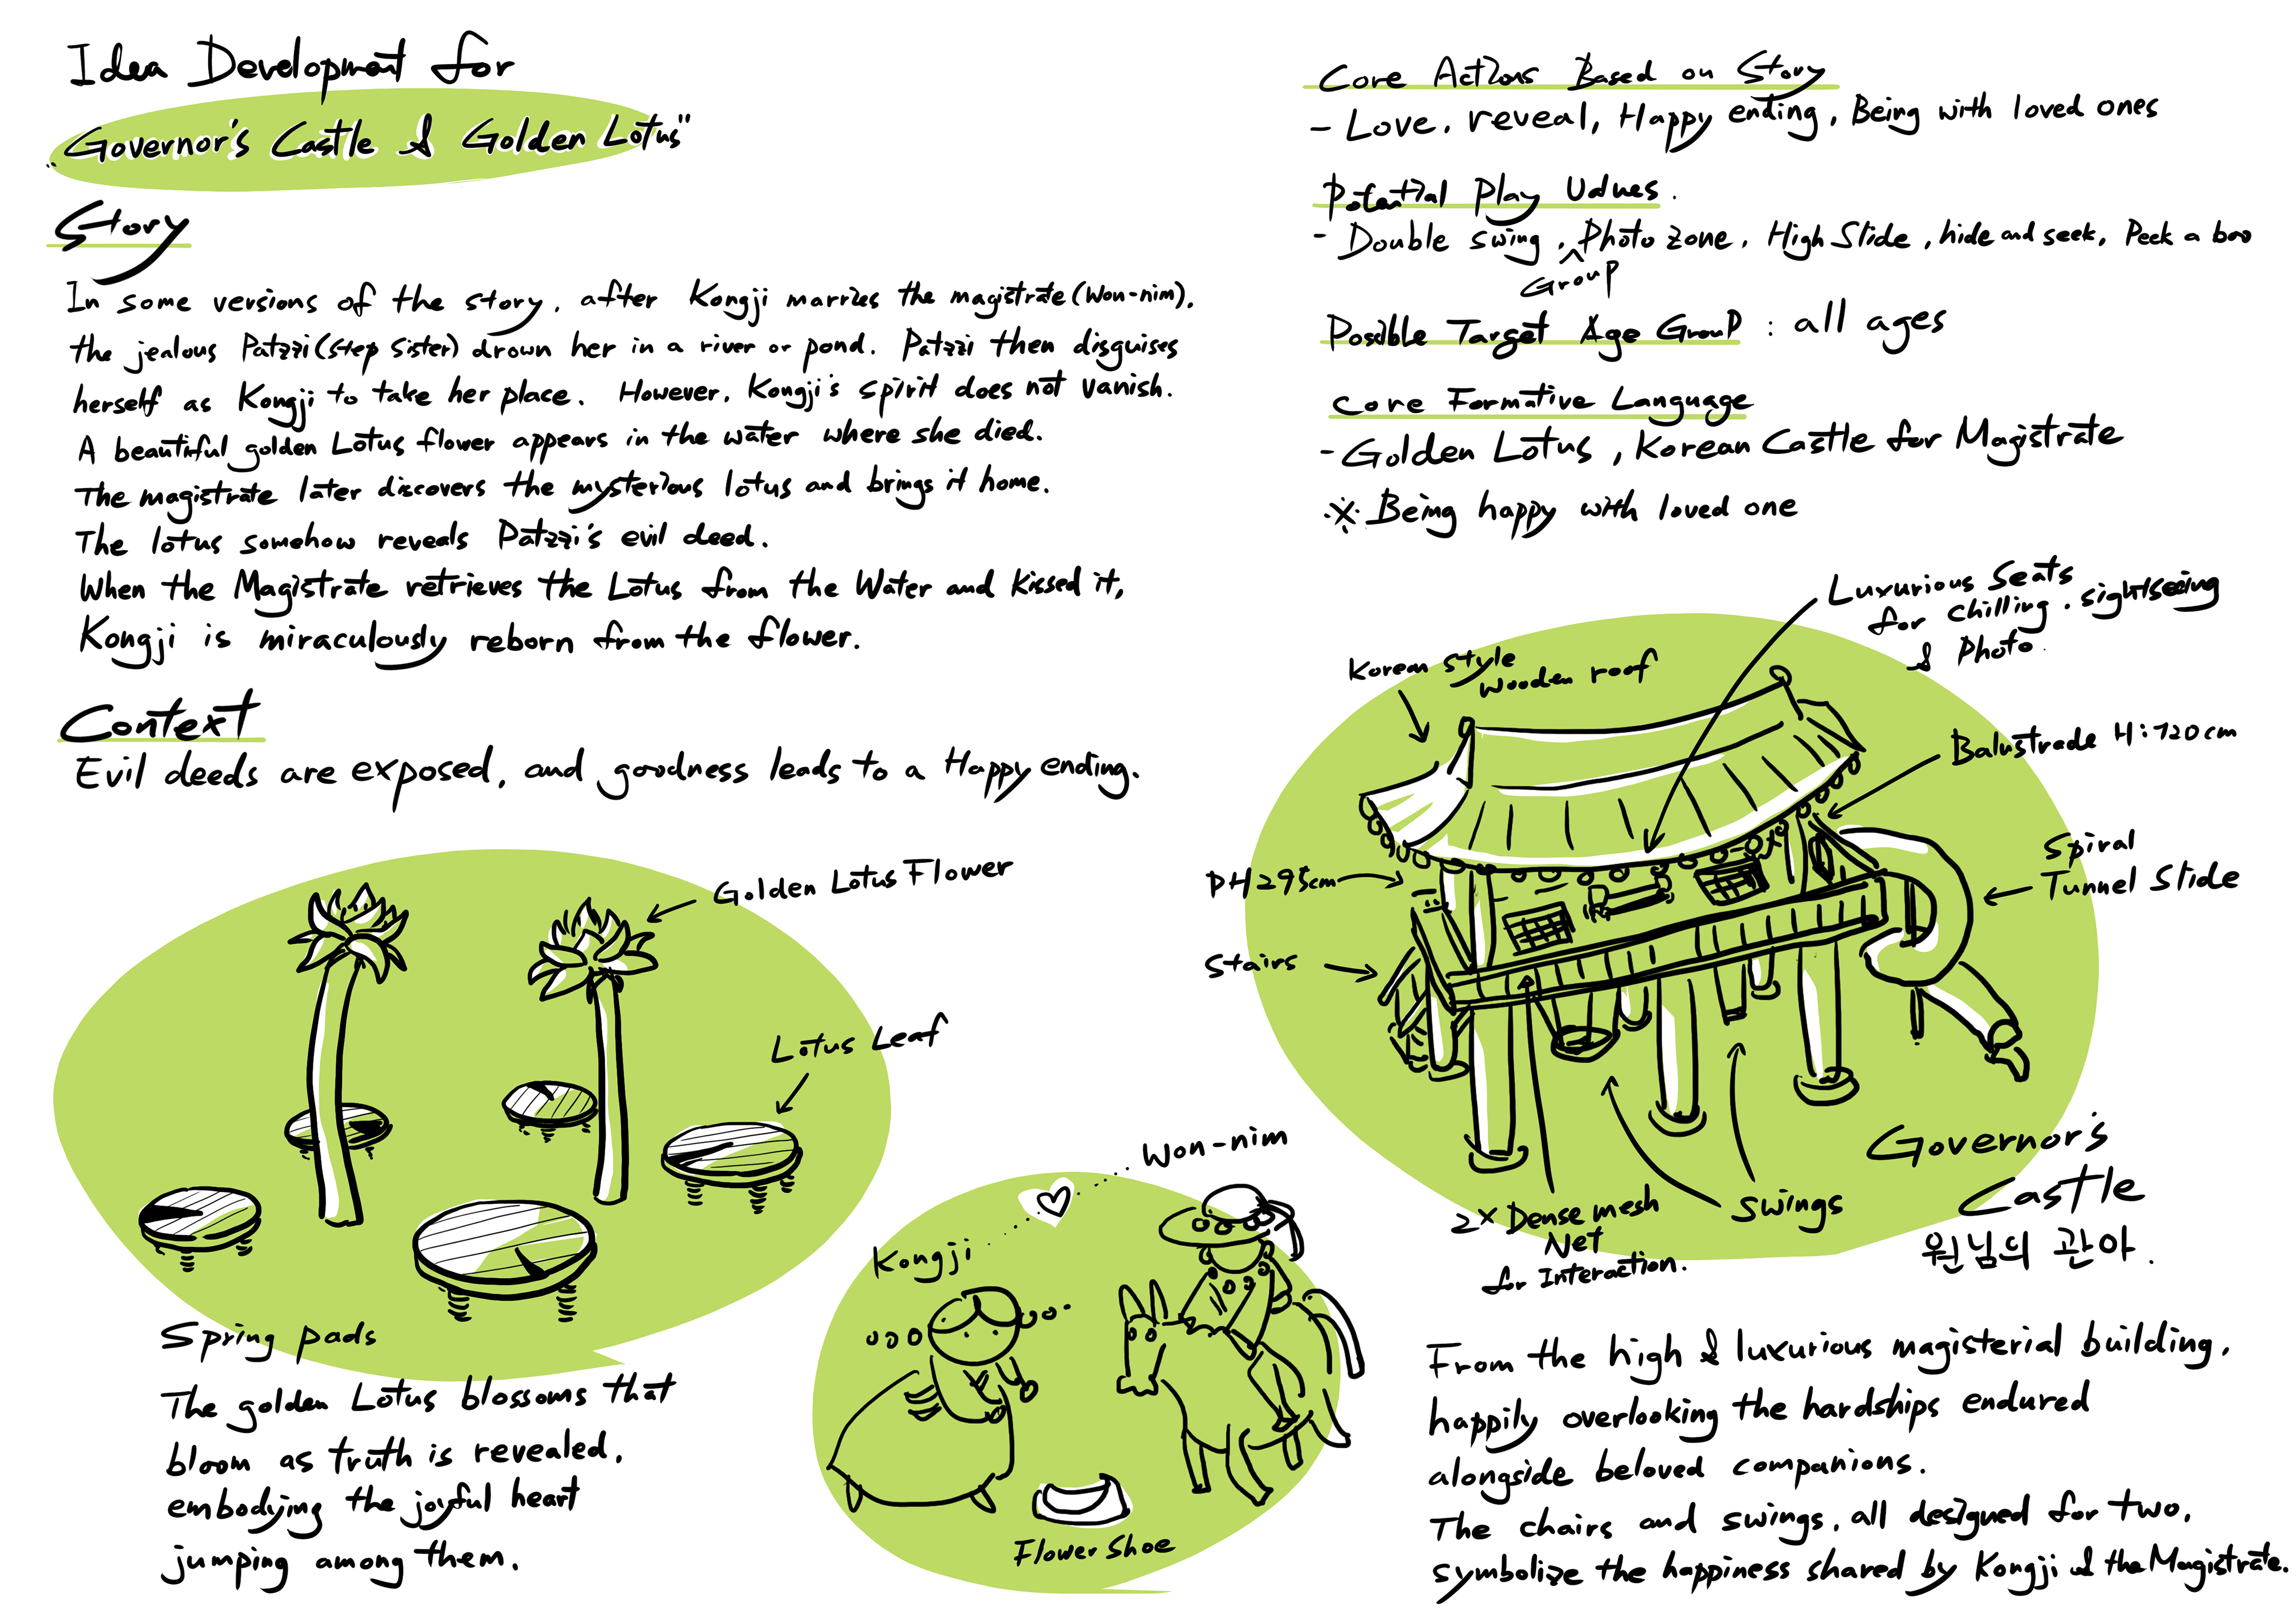 Idea Development for
"Governor's Castle & Golden Lotus"
Story
In some versions of the story, after Kongji marries the magistrate (Won-nim),
the jealous Patzzi (step sister) drown her in a river or pond. Patzzi then disguises
herself as Kongji to take her place. However, Kongji's spirit does not vanish.
A beautiful golden Lotus flower appears in the water where she died.
The magistrate later discovers the mysterious lotus and brings it home.
The lotus somehow reveals Patzzi's evil deed.
When the Magistrate retrieves the Lotus from the Water and kissed it,
Kongji is miraculously reborn from the flower.
Context
Evil deeds are exposed, and goodness leads to a Happy ending.
Golden Lotus Flower
Lotus Leaf
Spring pads
The golden Lotus blossoms that
bloom as truth is revealed,
embodying the joyful heart
jumping among them.
Won-nim
Kongji
Flower Shoe
Core Actions Based on Story
- Love, reveal, Happy ending, Being with loved ones
Potential Play Values.
- Double swing, Group Photo zone, High Slide, hide and seek, Peek a boo
Possible Target Age Group : all ages
Core Formative Language
- Golden Lotus, Korean Castle for Magistrate
※ Being happy with loved one
Luxurious Seats
for chilling, sightseeing
& Photo.
Korean style
wooden roof
Balustrade H:120cm
PH295cm
Spiral
Tunnel Slide
Stairs
2x Dense mesh
Net
for Interaction.
Swings
Governor's
Castle
원님의 관아.
From the high & luxurious magisterial building,
happily overlooking the hardships endured
alongside beloved companions.
The chairs and swings, all designed for two,
symbolize the happiness shared by Kongji & the Magistrate.